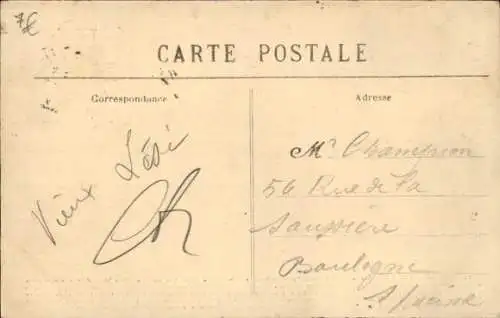 7€
CARTE POSTALE
Correspondance
Adresse
Vieux
Mr Champion
56 Rue de la
Saussière
Boulogne
s/ seine